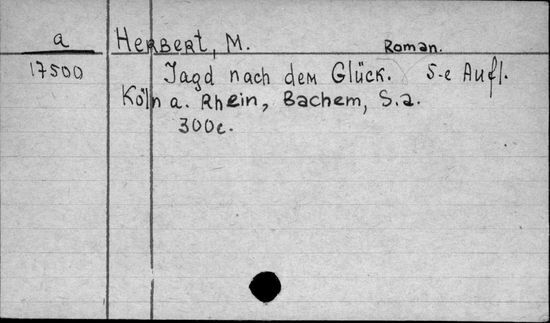 a Herbert, M. Roman.
17500 Jagd nach dem Glück. 5-e Aufl.
Köln a. Rhein, Bachem, S.a.
300c.